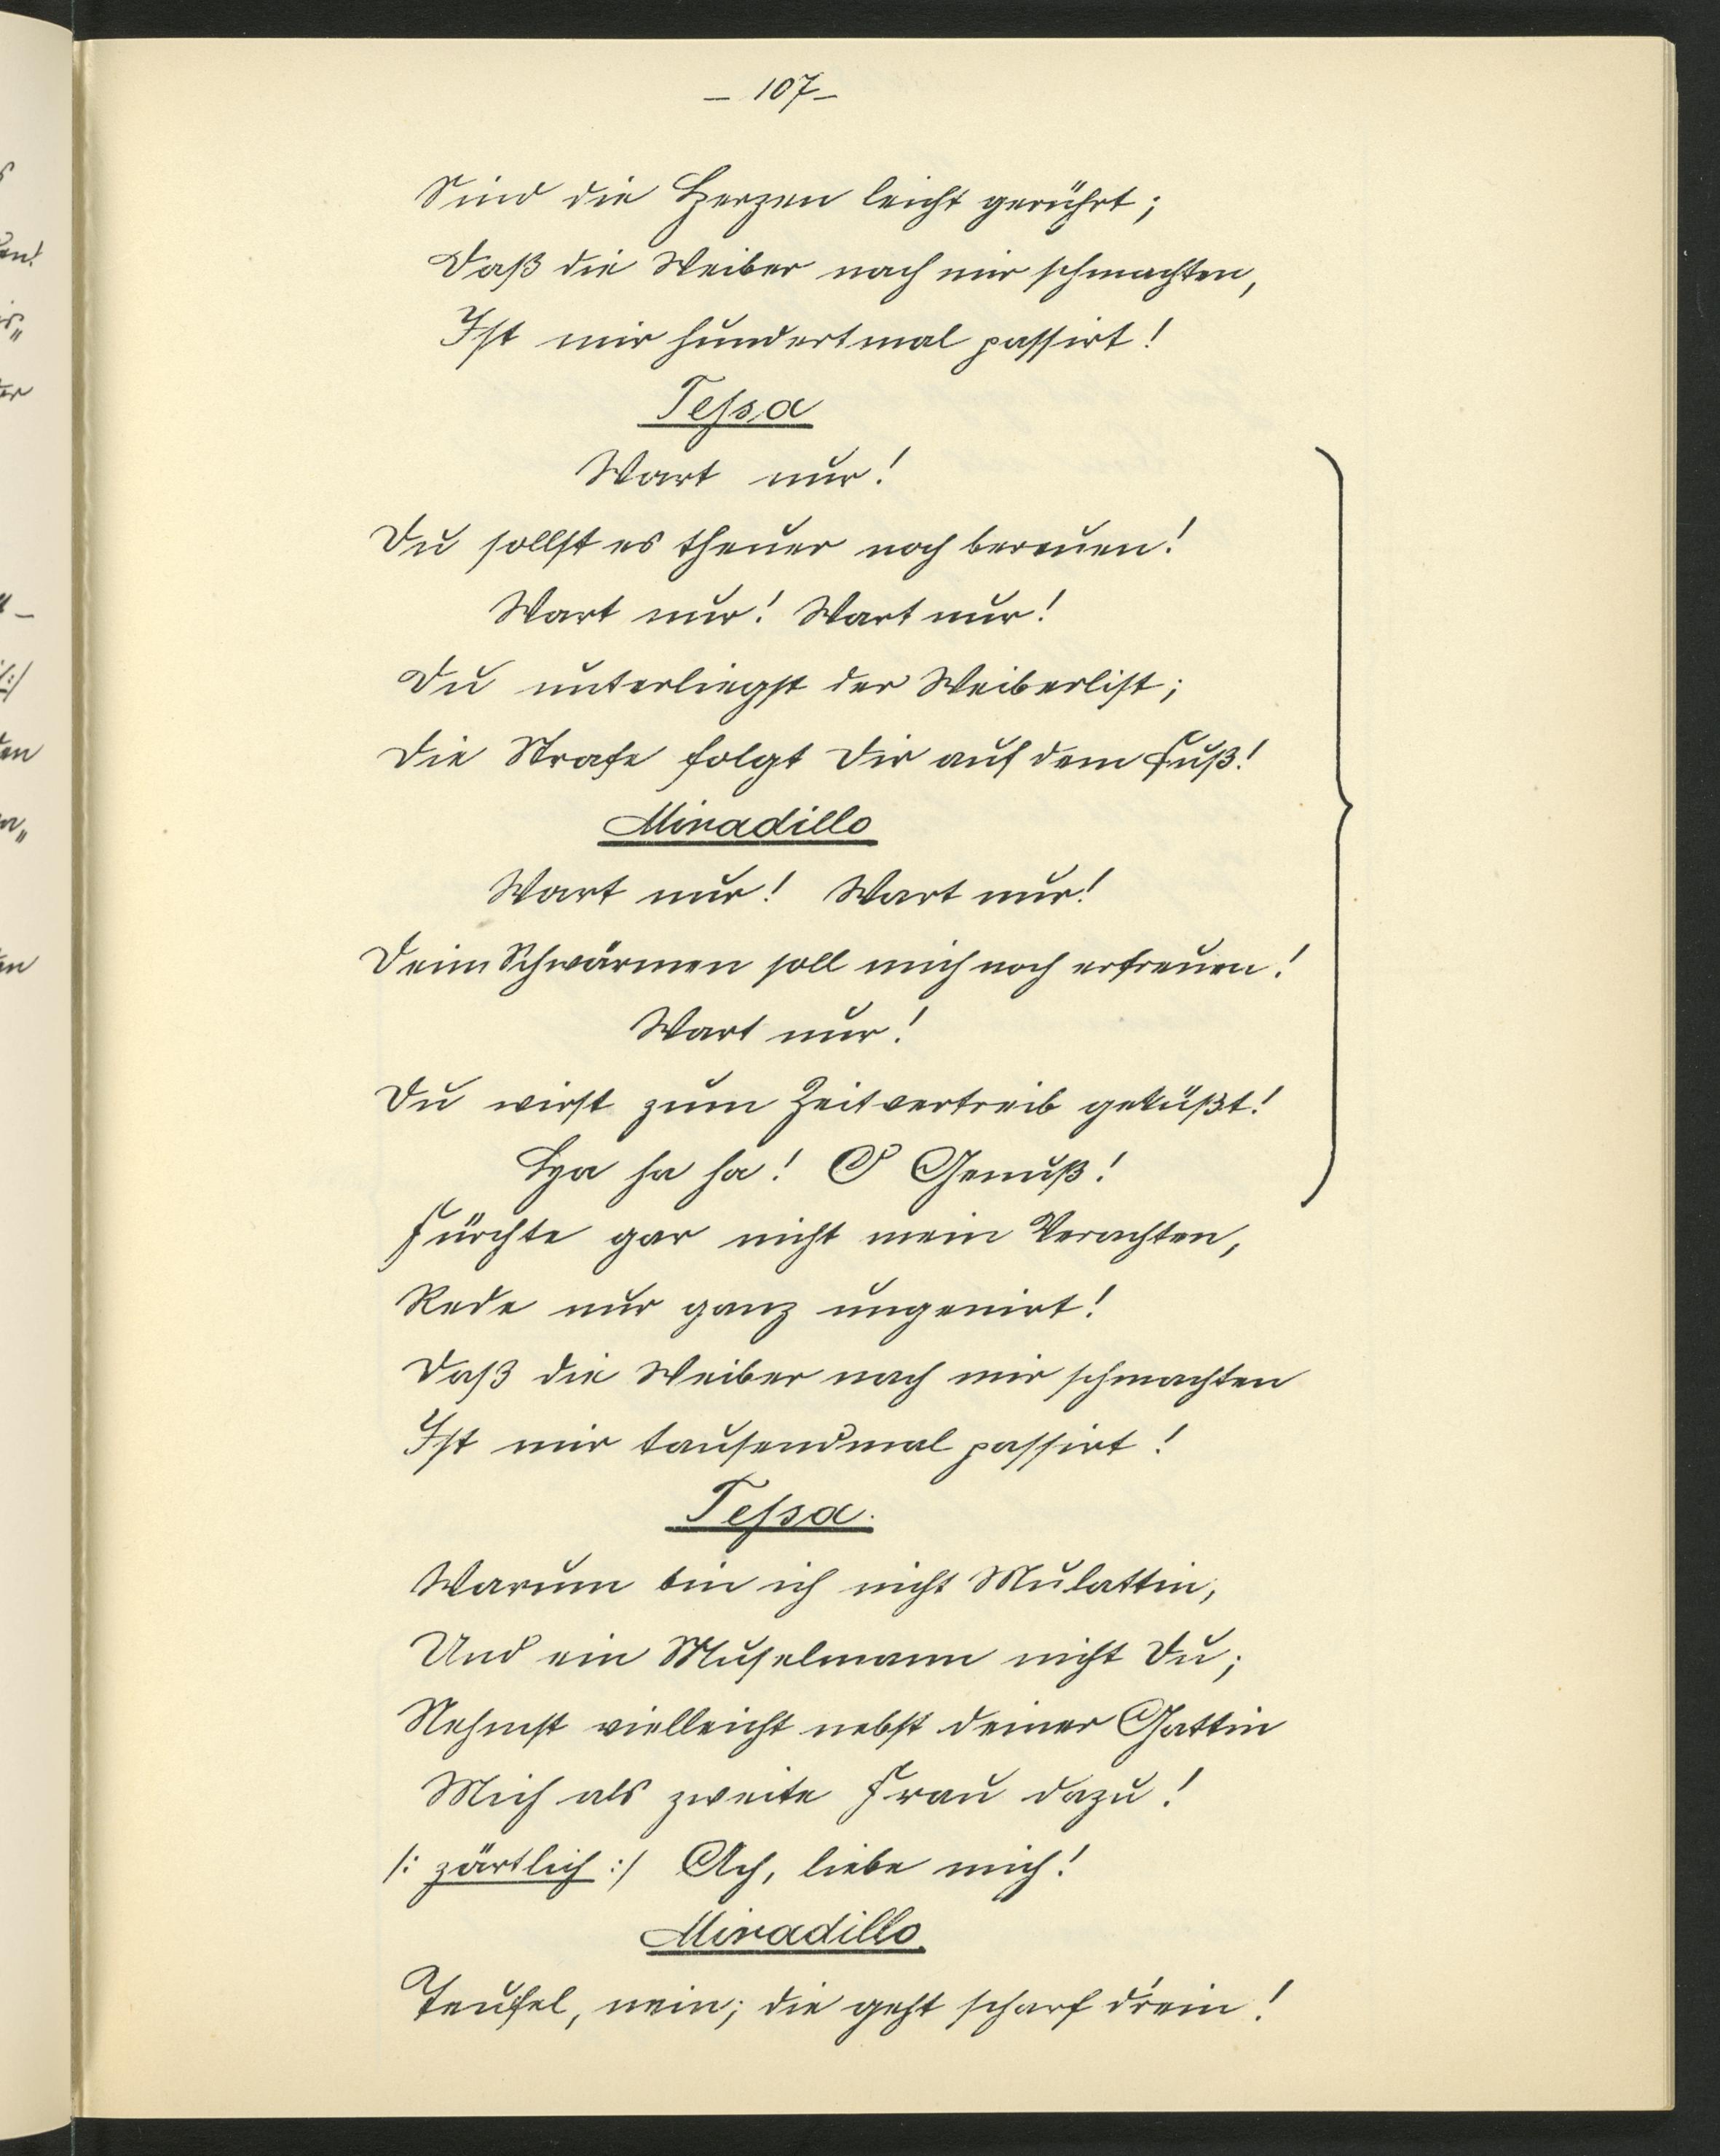 – 107 –
Sind die Herzen leicht gerührt;
Daß die Weiber nach mir schmachten,
Ist mir hundertmal passirt!
Tessa
Wart nur!
Du sollst es theuer noch bereuen!
Wart nur! Wart nur!
Du unterliegst der Weiberlist;
Die Strafe folgt Dir auf dem Fuß!
Miradillo
Wart nur! Wart nur!
Dein Schwärmen soll mich noch erfreuen!
Wart nur!
Du wirst zum Zeitvertreib geküßt!
Ha ha ha! O Genuß!
Fürchte gar nicht mein Verachten,
Rede nur ganz ungenirt!
Daß die Weiber nach mir schmachten
Ist mir tausendmal passirt!
Tessa.
Warum bin ich nicht Mulattin,
Und ein Muselmann nicht Du;
Nehmst vielleicht nebst deiner Gattin
Mich als zweite Frau dazu!
/: zärtlich :/ Ach, liebe mich!
Miradillo
Teufel, nein; die geht scharf d'rein!